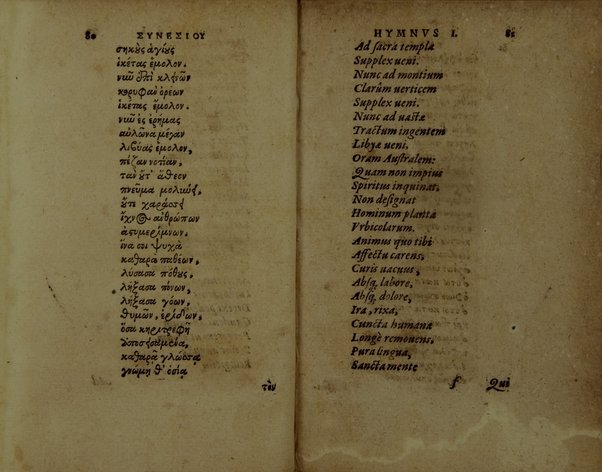 80 ΣΥΝΕΣΙΟΥ
σηκοὺς ἁγίους
ἱκέτας ἔμολον.
νῦν ἐπὶ κλεινῶν
κορυφὰν ὀρέων
ἱκέτας ἔμολον.
νῦν ἐς ἐρήμας
αὐλῶνα μέγαν
λιβύας ἔμολον,
πέζαν νοτίαν,
τὰν οὔτ' ἄθεον
πνεῦμα μολύνει,
οὔτε χαράσσει
ἴχνος ἀνθρώπων
ἀστυμερίμνων.
ἵνα σοι ψυχὰ
καθαρὰ παθέων,
λύσασα πόθους,
λήξασα πόνων,
λήξασα γόων,
θυμῶν, ἐρίδων,
ὅσα κηριτρεφῆ
καθαρᾷ γλώσσᾳ
γνώμῃ θ' ὁσίᾳ
τὸν
HYMNVS I. 81
Ad sacra templa
Supplex ueni.
Nunc ad montium
Clarûm uerticem
Supplex ueni.
Nunc ad uastæ
Tractum ingentem
Libyæ ueni,
Oram Australem:
Quam non impius
Spiritus inquinat,
Non designat
Hominum planta
Vrbicolarum.
Animus quo tibi
Affectu carens,
Curis uacuus,
Absq; labore,
Absq; dolore,
Ira, rixa,
Cuncta humana
Longè remouens,
Pura lingua,
Sanctamente
f Qui